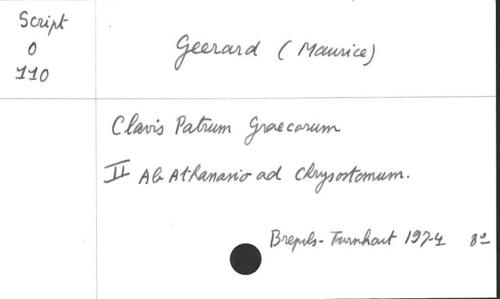 Script
0
110
Geerard (Maurice)
Clavis Patrum Graecorum
II Ab Athanasio ad Chrysostomum.
Brepols-Turnhout 1974 8º